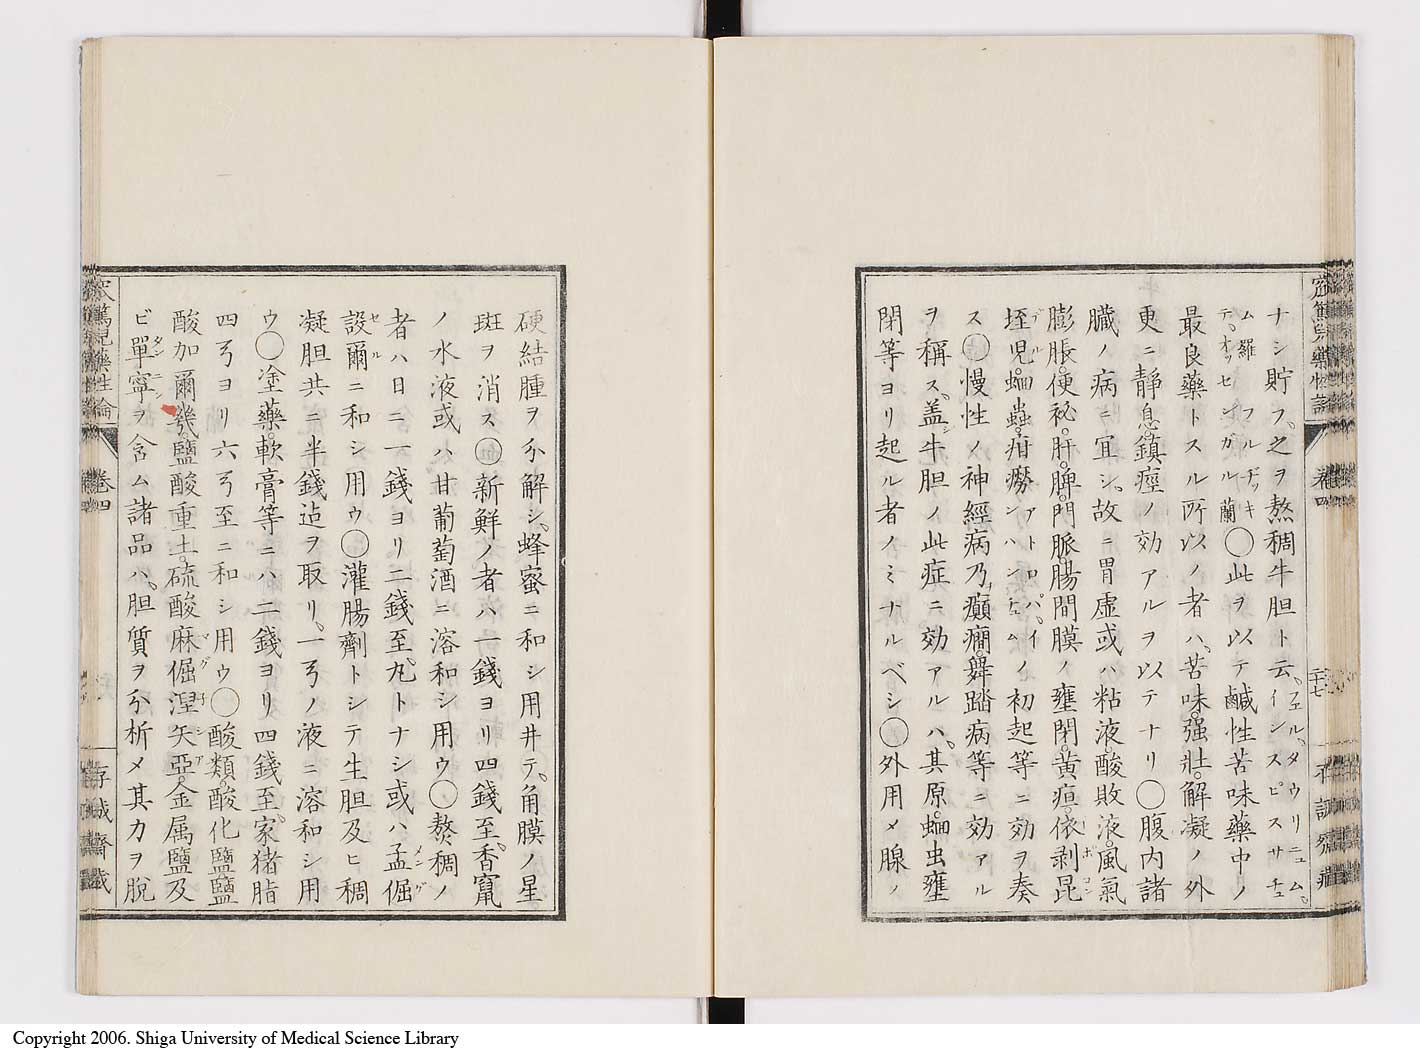 ナシ貯フ、之ヲ熬稠牛胆ト云、フェル、タウリニュム、インスピスサチュ
ム羅 フルヂッキテ、オッセンガル蘭 ◯此ヲ以テ鹹性苦味藥中ノ
最良藥トスル所以ノ者ハ、苦味。強壯。解凝ノ外
更ニ靜息鎮痙ノ効アルヲ以テナリ◯腹内諸
臓ノ病ニ宜シ、故ニ胃虚或ハ粘液。酸敗液。風氣
膨脹。便祕。肝。脾。門脈。腸間膜ノ壅閉。黄疸。依剥昆
垤児。蛔蟲。疳癆 アトロパイハンヒムノ初起等ニ効ヲ奏
ス◯慢性ノ神經病乃癲癇。舞踏病等ニ効アル
ヲ稱ス、盖シ牛胆ノ此症ニ効アルハ、其原蛔虫壅
閉等ヨリ起ル者ノミナルベシ◯外用メ腺ノ
硬結腫ヲ分解シ、蜂蜜ニ和シ用井テ、角膜ノ星
斑ヲ消ス◯新鮮ノ者ハ一錢ヨリ四錢至、香竄
ノ水液或ハ甘葡萄酒ニ溶和シ用ウ◯熬稠ノ
者ハ日ニ一錢ヨリ二錢至、丸トナシ或ハ孟倔
設爾ニ和シ用ウ◯灌腸劑トシテ生胆及ヒ稠
凝胆共ニ半錢迠ヲ取リ、一弓ノ液ニ溶和シ用
ウ◯塗藥。軟膏等ニハ二錢ヨリ四錢至、家猪脂
四弓ヨリ六弓至ニ和シ用ウ◯酸類酸化鹽鹽
酸加爾幾鹽酸重土。硫酸麻倔涅矢亞。金属鹽及
ビ單寧ヲ含ム諸品ハ、胆質ヲ分析メ其力ヲ脱
卷四
Copyright 2006. Shiga University of Medical Science Library